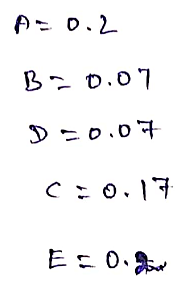 A = 0.2
B = 0.07
D = 0.07
C = 0.17
E = 0.